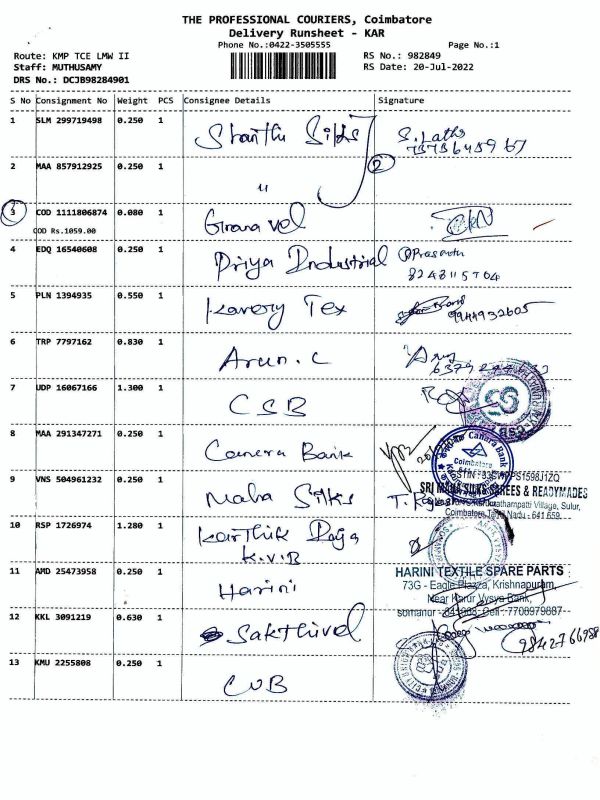 THE PROFESSIONAL COURIERS, Coimbatore
Delivery Runsheet - KAR
Phone No.:0422-3505555 Page No.:1
Route: KMP TCE LMW II RS No.: 982849
Staff: MUTHUSAMY RS Date: 20-Jul-2022
DRS No.: DCJB98284901
S No Consignment No Weight PCS Consignee Details Signature
1 SLM 299719498 0.250 1 Shanthi Silks S. Latha
2 MAA 857912925 0.250 1 " 2
3 COD 1111806874 0.080 1 Gnanavel
COD Rs.1059.00
4 EDQ 16540608 0.250 1 Priya Industrial
8248115704
5 PLN 1394935 0.550 1 Kavery Tex
9944932605
6 TRP 7797162 0.830 1 Arun. C
7 UDP 16067166 1.300 1 CSB
8 MAA 291347271 0.250 1 Canera Bank
Canara Bank
Coimbatore
9 VNS 504961232 0.250 1 Maha Silks
SRI MAHA SILKS SAREES & READYMADES
Village, Sulur,
Coimbatore, Tamil Nadu - 641 659.
10 RSP 1726974 1.280 1 Karthik Raja
K.V.B
11 AMD 25473958 0.250 1 Harini
HARINI TEXTILE SPARE PARTS
73G - Eagle Plazza, Krishnapuram,
Near Karur Vysya Bank,
Somanur - Cell : 7708979887
12 KKL 3091219 0.630 1 Sakthivel
9842766988
13 KMU 2255808 0.250 1 CUB